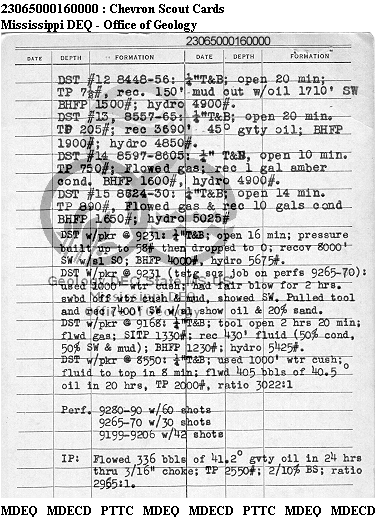 23065000160000 : Chevron Scout Cards
Mississippi DEQ - Office of Geology
23065000160000
DATE DEPTH FORMATION DATE DEPTH FORMATION
DST #12 8448-56: ¼"T&B; open 20 min;
TP 7½#, rec. 150' mud cut w/oil 1710' SW
BHFP 1500#; hydro 4900#.
DST #13, 8557-65: ¼"T&B; open 20 min.
TP 205#; rec 3690' 45° gvty oil; BHFP
1900#; hydro 4850#.
DST #14 8597-8605: ¼" T&B, open 10 min.
TP 750#; Flowed gas; rec 1 gal amber
cond. BHFP 1600#, hydro 4900#.
DST #15 8824-30: ¼"T&B, open 14 min.
TP 890#, Flowed gas & rec 10 gals cond
BHFP 1650#; hydro 5025#
DST w/pkr @ 9231: ¼"T&B; open 16 min; pressure
built up to 58# then dropped to 0; recov 8000'
SW w/sl SO; BHFP 4000#. hydro 5675#.
DST w/pkr @ 9231 (tstg sqz job on perfs 9265-70):
used 1000' wtr cush; had fair blow for 2 hrs.
swbd off wtr cush & mud, showed SW. Pulled tool
and rec 7400' SW w/sl show oil & 20% sand.
DST w/pkr @ 9168: ¼"T&B; tool open 2 hrs 20 min;
flwd gas; SITP 1330#; rec 430' fluid (50% cond,
50% SW & mud); BHFP 1230#; hydro 5425#.
DST w/pkr @ 8550: ¼"T&B; used 1000' wtr cush;
fluid to top in 8 min; flwd 405 bbls of 40.5°
oil in 20 hrs, TP 2000#, ratio 3022:1
Perf. 9280-90 w/60 shots
9265-70 w/30 shots
9199-9206 w/42 shots
IP: Flowed 336 bbls of 41.2° gvty oil in 24 hrs
thru 3/16" choke; TP 2550#; 2/10% BS; ratio
2965:1.
MDEQ MDECD PTTC MDEQ MDECD PTTC MDEQ MDECD